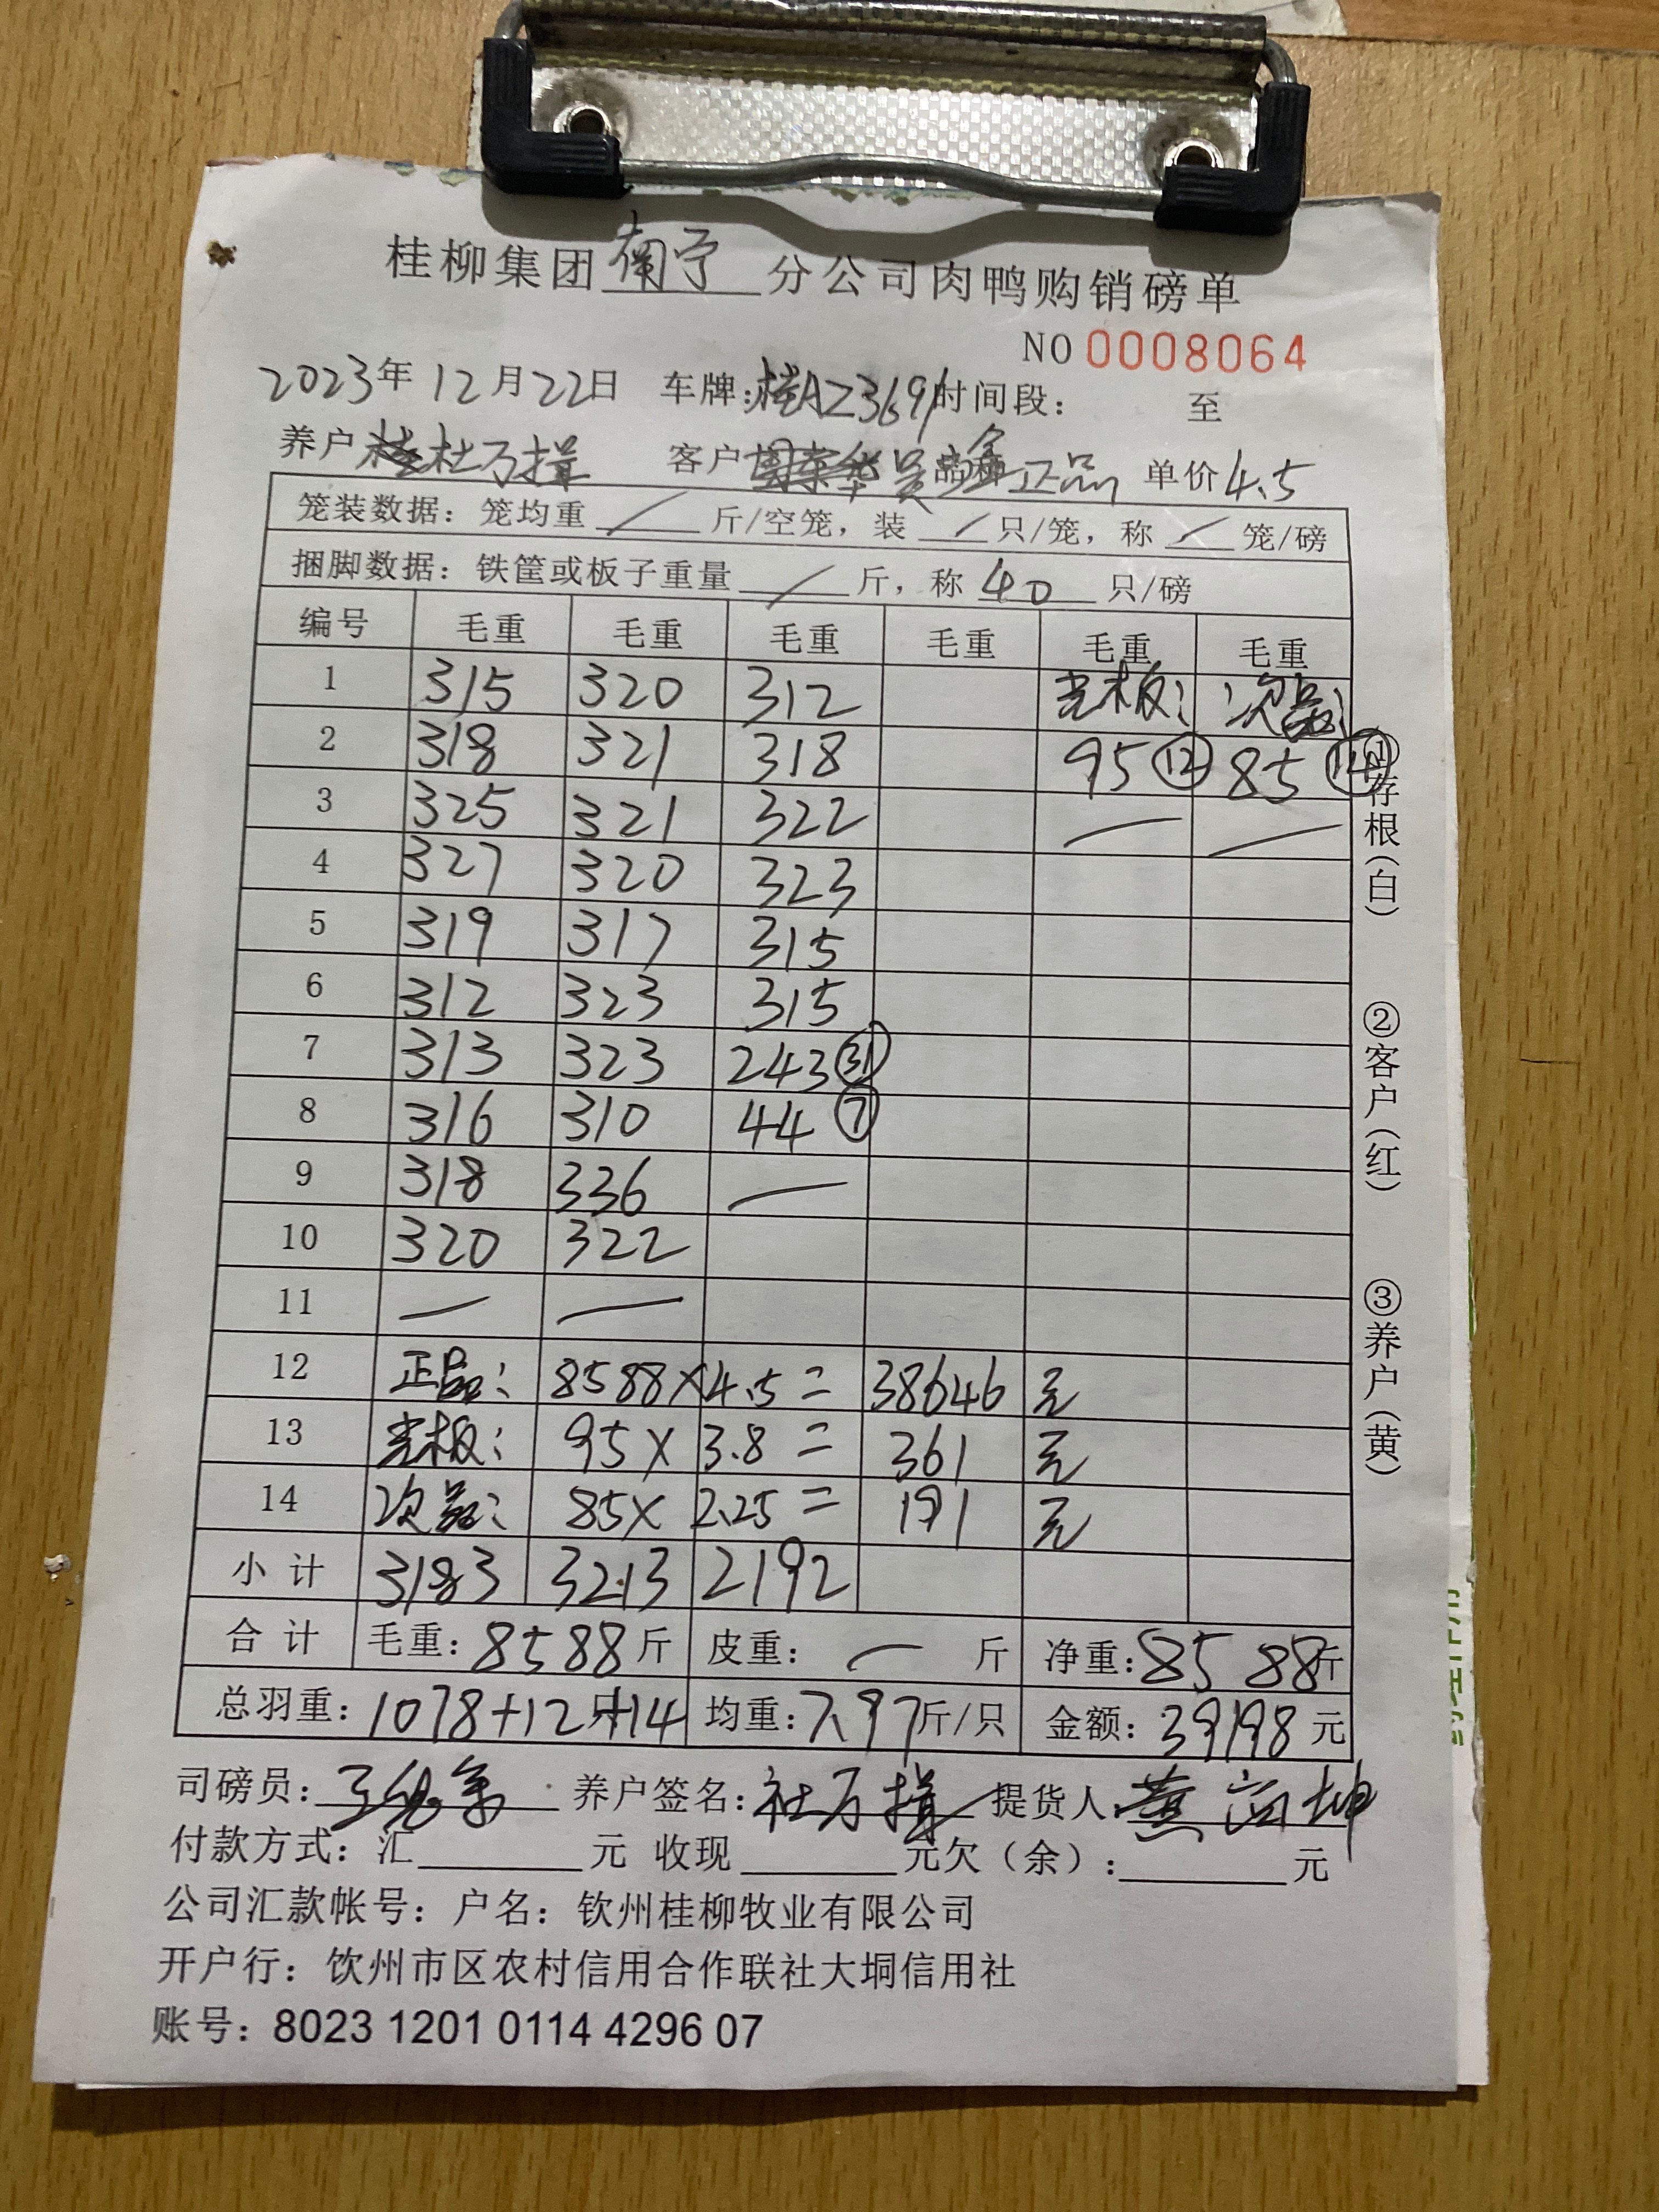 桂柳集团南宁分公司肉鸭购销磅单
NO 0008064
2023年12月22日 车牌:桂AZ3691时间段: 至
养户 杜万揖 客户 吴 金 品种 正品 单价4.5
笼装数据: 笼均重 / 斤/空笼, 装 / 只/笼, 称 / 笼/磅
捆脚数据: 铁筐或板子重量 / 斤, 称 40 只/磅
编号 毛重 毛重 毛重 毛重 毛重 毛重
1 315 320 312 光板: 次品:
2 318 321 318 95 ⑫ 85 ⑭
3 325 321 322 — —
4 327 320 323
5 319 317 315
6 312 323 315
7 313 323 243 ㉛
8 316 310 44 ⑦
9 318 336 —
10 320 322
11 — —
12 正品: 8588×4.5= 38646 元
13 光板: 95×3.8= 361 元
14 次品: 85×2.25= 191 元
小计 3183 3213 2192
合计 毛重:8588斤 皮重: — 斤 净重:8588斤
总羽重:1078+12只+14 均重:7.97斤/只 金额:39198元
司磅员: 养户签名:杜万揖 提货人:黄 坤
付款方式: 汇 元 收现 元欠(余): 元
公司汇款帐号: 户名: 钦州桂柳牧业有限公司
开户行: 饮州市区农村信用合作联社大垌信用社
账号: 8023 1201 0114 4296 07
①存根(白)
②客户(红)
③养户(黄)